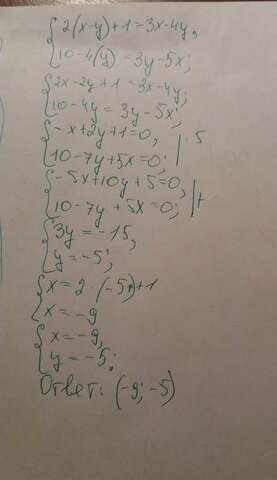 2(x-y)+1=3x-4y,
10-4(y)-3y-5x;
2x-2y+1=3x-4y;
10-4y=3y-5x;
-x+2y+1=0, |·5
10-7y+5x=0;
-5x+10y+5=0, |+
10-7y+5x=0;
3y=-15,
y=-5;
x=2·(-5)+1
x=-9
x=-9,
y=-5;
Ответ: (-9; -5)